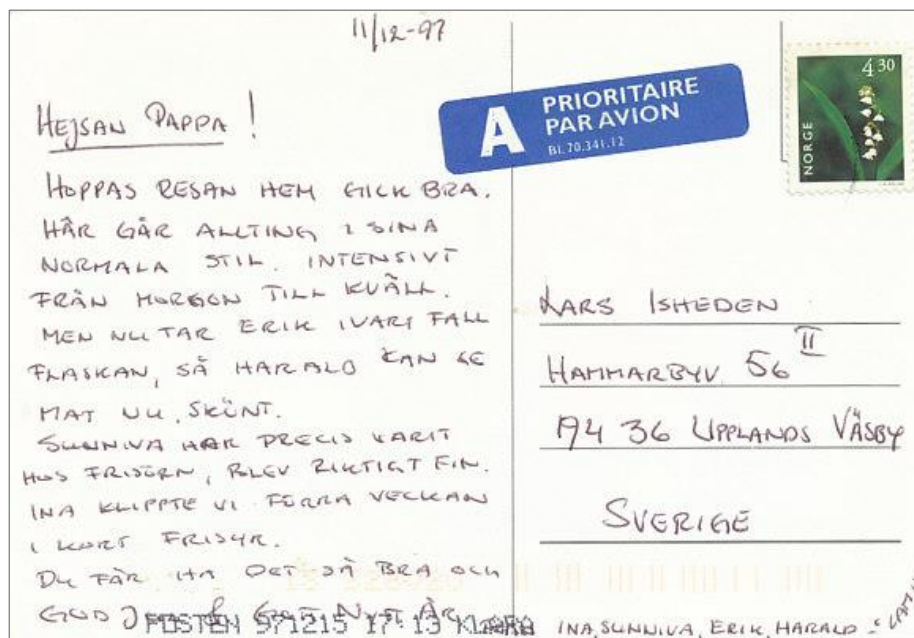 11/12-97
HEJSAN PAPPA!
HOPPAS RESAN HEM GICK BRA.
HÄR GÅR ALLTING I SINA
NORMALA STIL. INTENSIVT
FRÅN MORGON TILL KVÄLL.
MEN NU TAR ERIK IVART FALL
FLASKAN, SÅ HARALD KAN GE
MAT NU. SKÖNT.
SUNNIVA HAR PRECIS VARIT
HOS FRISÖRN, BLEV RIKTIGT FIN.
INA KLIPPTE VI FÖRRA VECKAN
I KORT FRISYR.
DU FÅR HA DET SÅ BRA OCH
GOD JUL & GOTT NYTT ÅR
POSTEN 971215 17-13 KLARA
INA, SUNNIVA, ERIK, HARALD
A PRIORITAIRE
PAR AVION
BL.70.341.12
NORGE
4 30
LARS ISHEDEN
HAMMARBYV. 56 II
194 36 UPPLANDS VÄSBY
SVERIGE